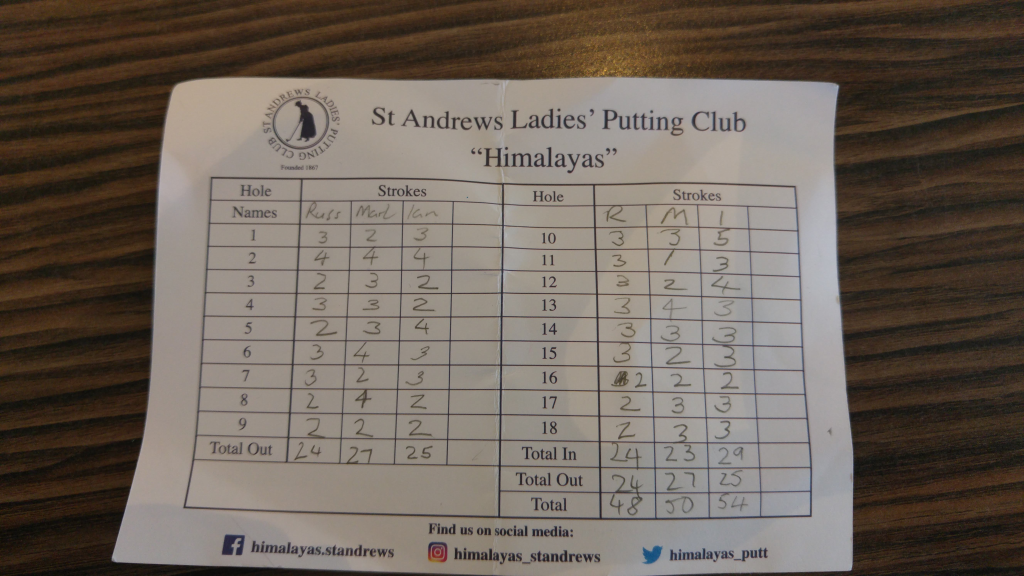 ST ANDREWS LADIES' PUTTING CLUB
Founded 1867
St Andrews Ladies' Putting Club
"Himalayas"
Hole Strokes Hole Strokes
Names Russ Mark Ian R M I
1 3 2 3 10 3 3 5
2 4 4 4 11 3 1 3
3 2 3 2 12 3 2 4
4 3 3 2 13 3 4 3
5 2 3 4 14 3 3 3
6 3 4 3 15 3 2 3
7 3 2 3 16 2 2 2
8 2 4 2 17 2 3 3
9 2 2 2 18 2 3 3
Total Out 24 27 25 Total In 24 23 29
Total Out 24 27 25
Total 48 50 54
Find us on social media:
himalayas.standrews himalayas_standrews himalayas_putt